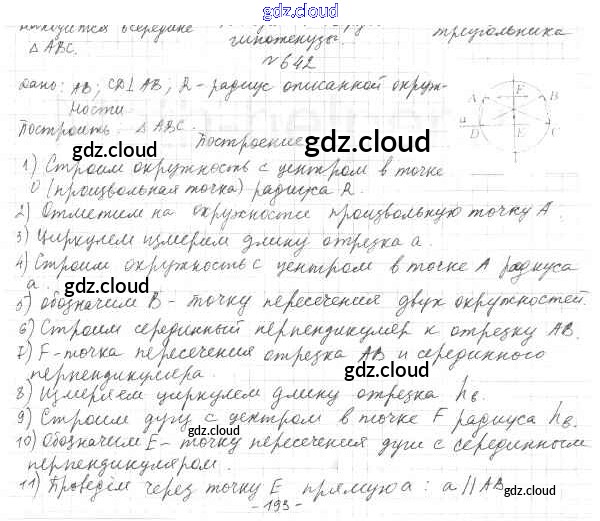 gdz.cloud
находится в середине гипотенузы. треугольника
△ ABC.
№642
Дано: AB; CD⊥AB; R - радиус описанной окруж-
ности.
Построить: △ ABC.
gdz.cloud
Построение
gdz.cloud
A F B
a
D E C
1) Строим окружность с центром в точке
O (произвольная точка) радиуса R.
gdz.cloud
2) Отметим на окружности произвольную точку A.
3) Циркулем измерим длину отрезка a.
4) Строим окружность с центром в точке A радиуса
a.
gdz.cloud
5) обозначим B - точку пересечения двух окружностей.
6) Строим серединный перпендикуляр к отрезку AB.
7) F - точка пересечения отрезка AB и серединного
перпендикуляра.
gdz.cloud
8) Измеряем циркулем длину отрезка h в.
9) Строим дугу с центром в точке F радиуса h в.
gdz.cloud
10) Обозначим E - точку пересечения дуги с серединным
перпендикуляром.
gdz.cloud
11) Проведём через точку E прямую a : a || AB
gdz.cloud
- 193 -
gdz.cloud